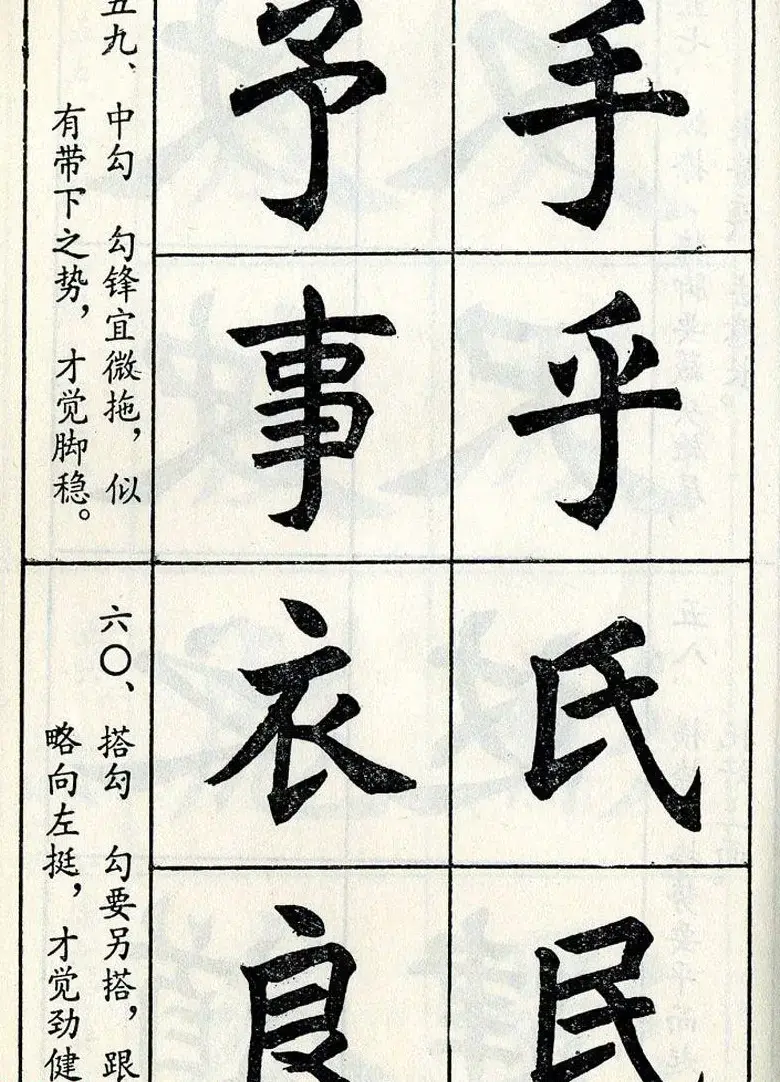 手乎
予事
五九、中勾　勾锋宜微拖，似
有带下之势，才觉脚稳。
氏民
衣良
六〇、搭勾　勾要另搭，跟
略向左挺，才觉劲健